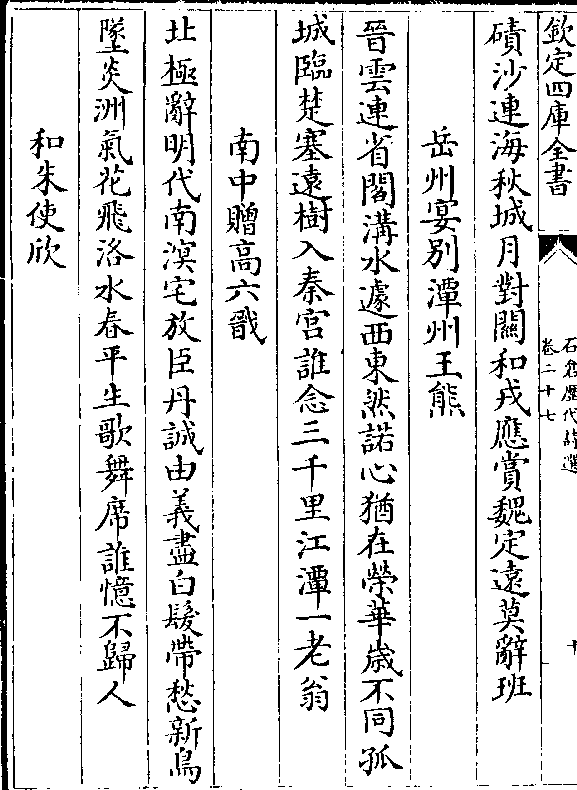 欽定四庫全書
石倉歷代詩選
卷二十七
十
磧沙連海秋城月對關和戎應賞魏定遠莫辭班
岳州宴别潭州王熊
晉雲連省閣溝水遽西東然諾心猶在榮華歳不同孤
城臨楚塞遠樹入秦宫誰念三千里江潭一老翁
南中贈高六戩
北極辭明代南溟宅放臣丹誠由義盡白髮帶愁新鳥
墜炎洲氣花飛洛水春平生歌舞席誰憶不歸人
和朱使欣